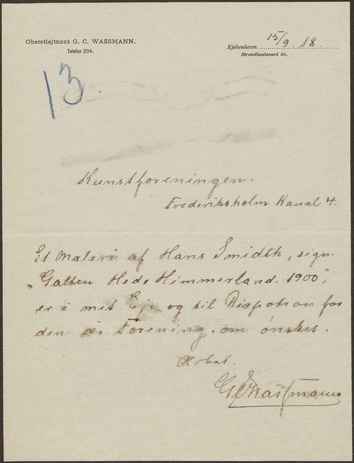 Oberstløjtnant G. C. WASSMANN.
København 15/9 18.
Strandboulevard
13.
Kunstforeningen.
Frederiksholm Kanal 4.
Et Maleri af Hans Smidth, sign.
"Galten Hede Himmerland. 1900",
er i mit Eje og til Disposition for
den ær Forening, om ønsket.
Høbst.
G C Wassmann